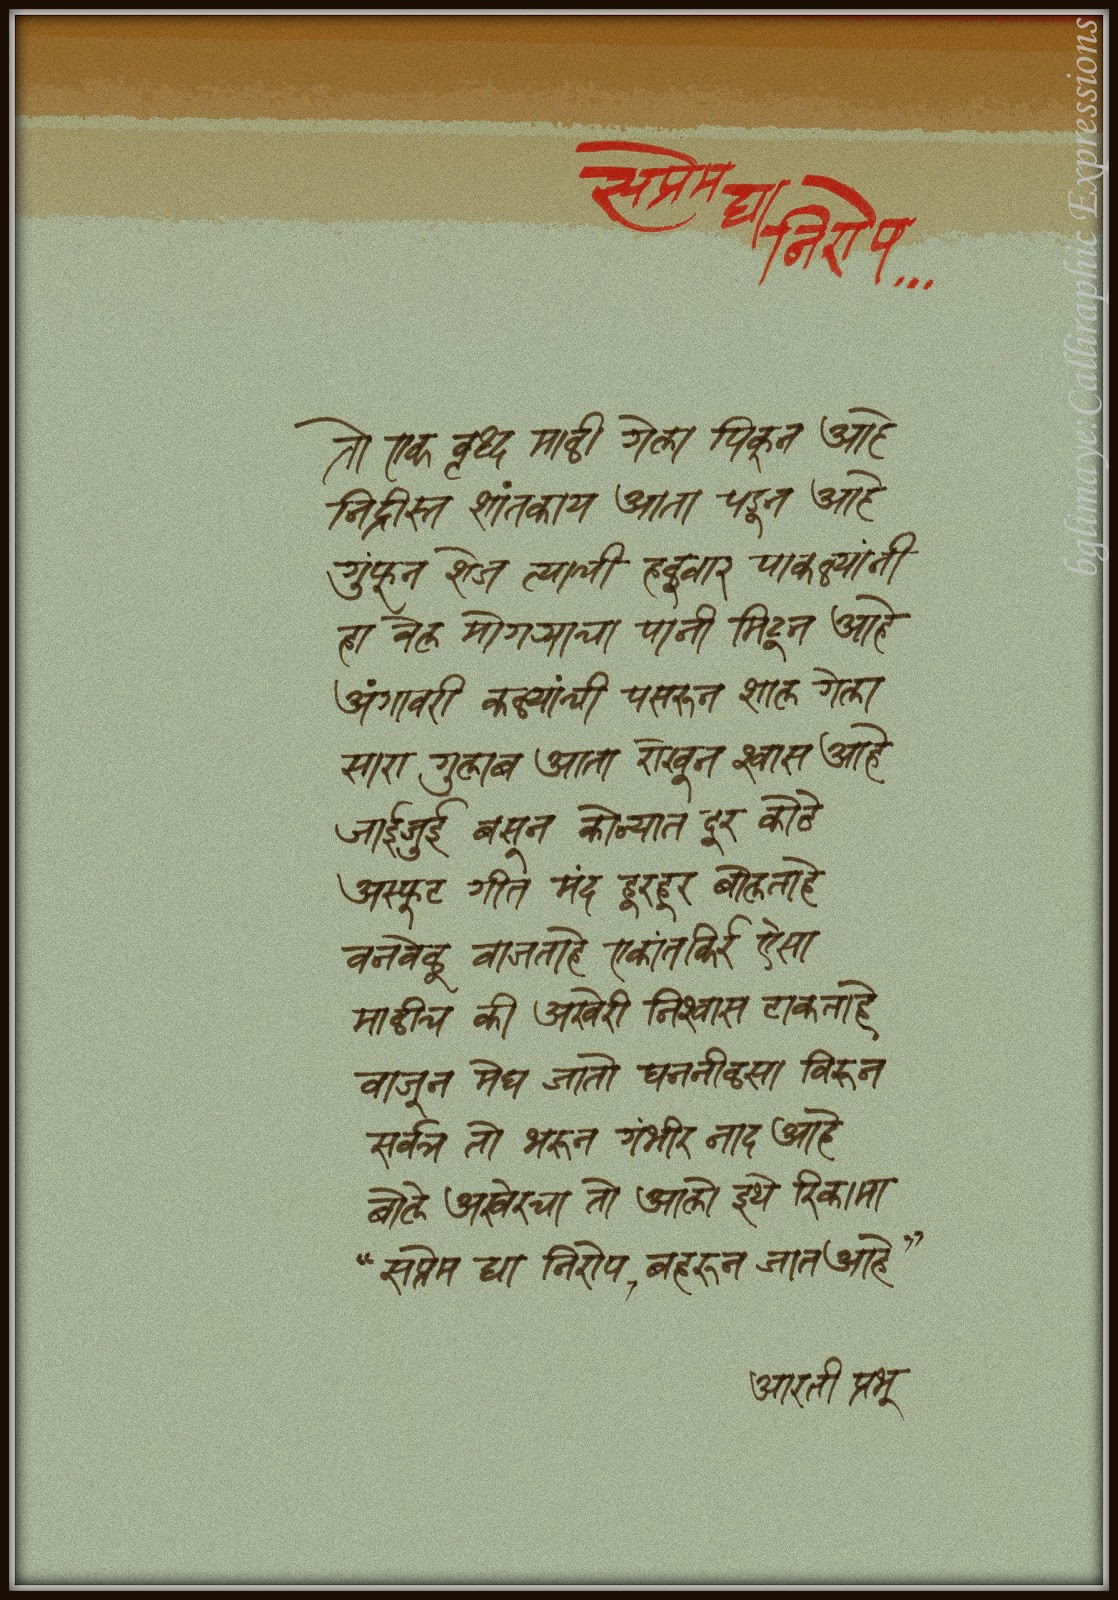 सप्रेम द्या
निरोप...
तो एक वृध्द माळी गेला पिकून आहे
निद्रीस्त शांतकाय आता पडून आहे
गुंफून शेज त्याची हळूवार पाकळ्यांनी
हा वेल मोगऱ्याचा पानी मिटून आहे
अंगावरी कळ्यांची पसरून शाल गेला
सारा गुलाब आता रोखून श्वास आहे
जाईजुई बसून कोन्यात दूर कोठे
अस्फूट गीत मंद हूरहूर बोलताहे
वनवेळू वाजताहे एकांतकिर्र ऐसा
माळीच की अखेरी निश्वास टाकताहे
वाजून मेघ जातो घननीळसा विरून
सर्वत्र तो भरून गंभीर नाद आहे
बोले अखेरचा तो आलो इथे रिकामा
“सप्रेम द्या निरोप, बहरून जात आहे”
आरती प्रभू
bglimaye:Calliraphic Expressions